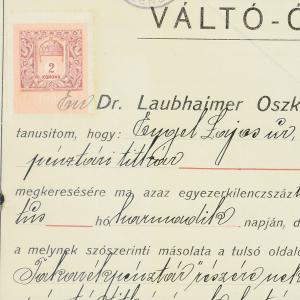 VÁLTÓ-Ó
2
KORONA
Én Dr. Laubhaimer Oszk
tanusitom, hogy: Eygel Lajos úr,
pénztári titkár
megkeresésére ma, azaz egyezerkilenczszáz
tus hó harmadik napján, d
a melynek szószerinti másolata a tulsó oldalo
Takarékpénztár részére